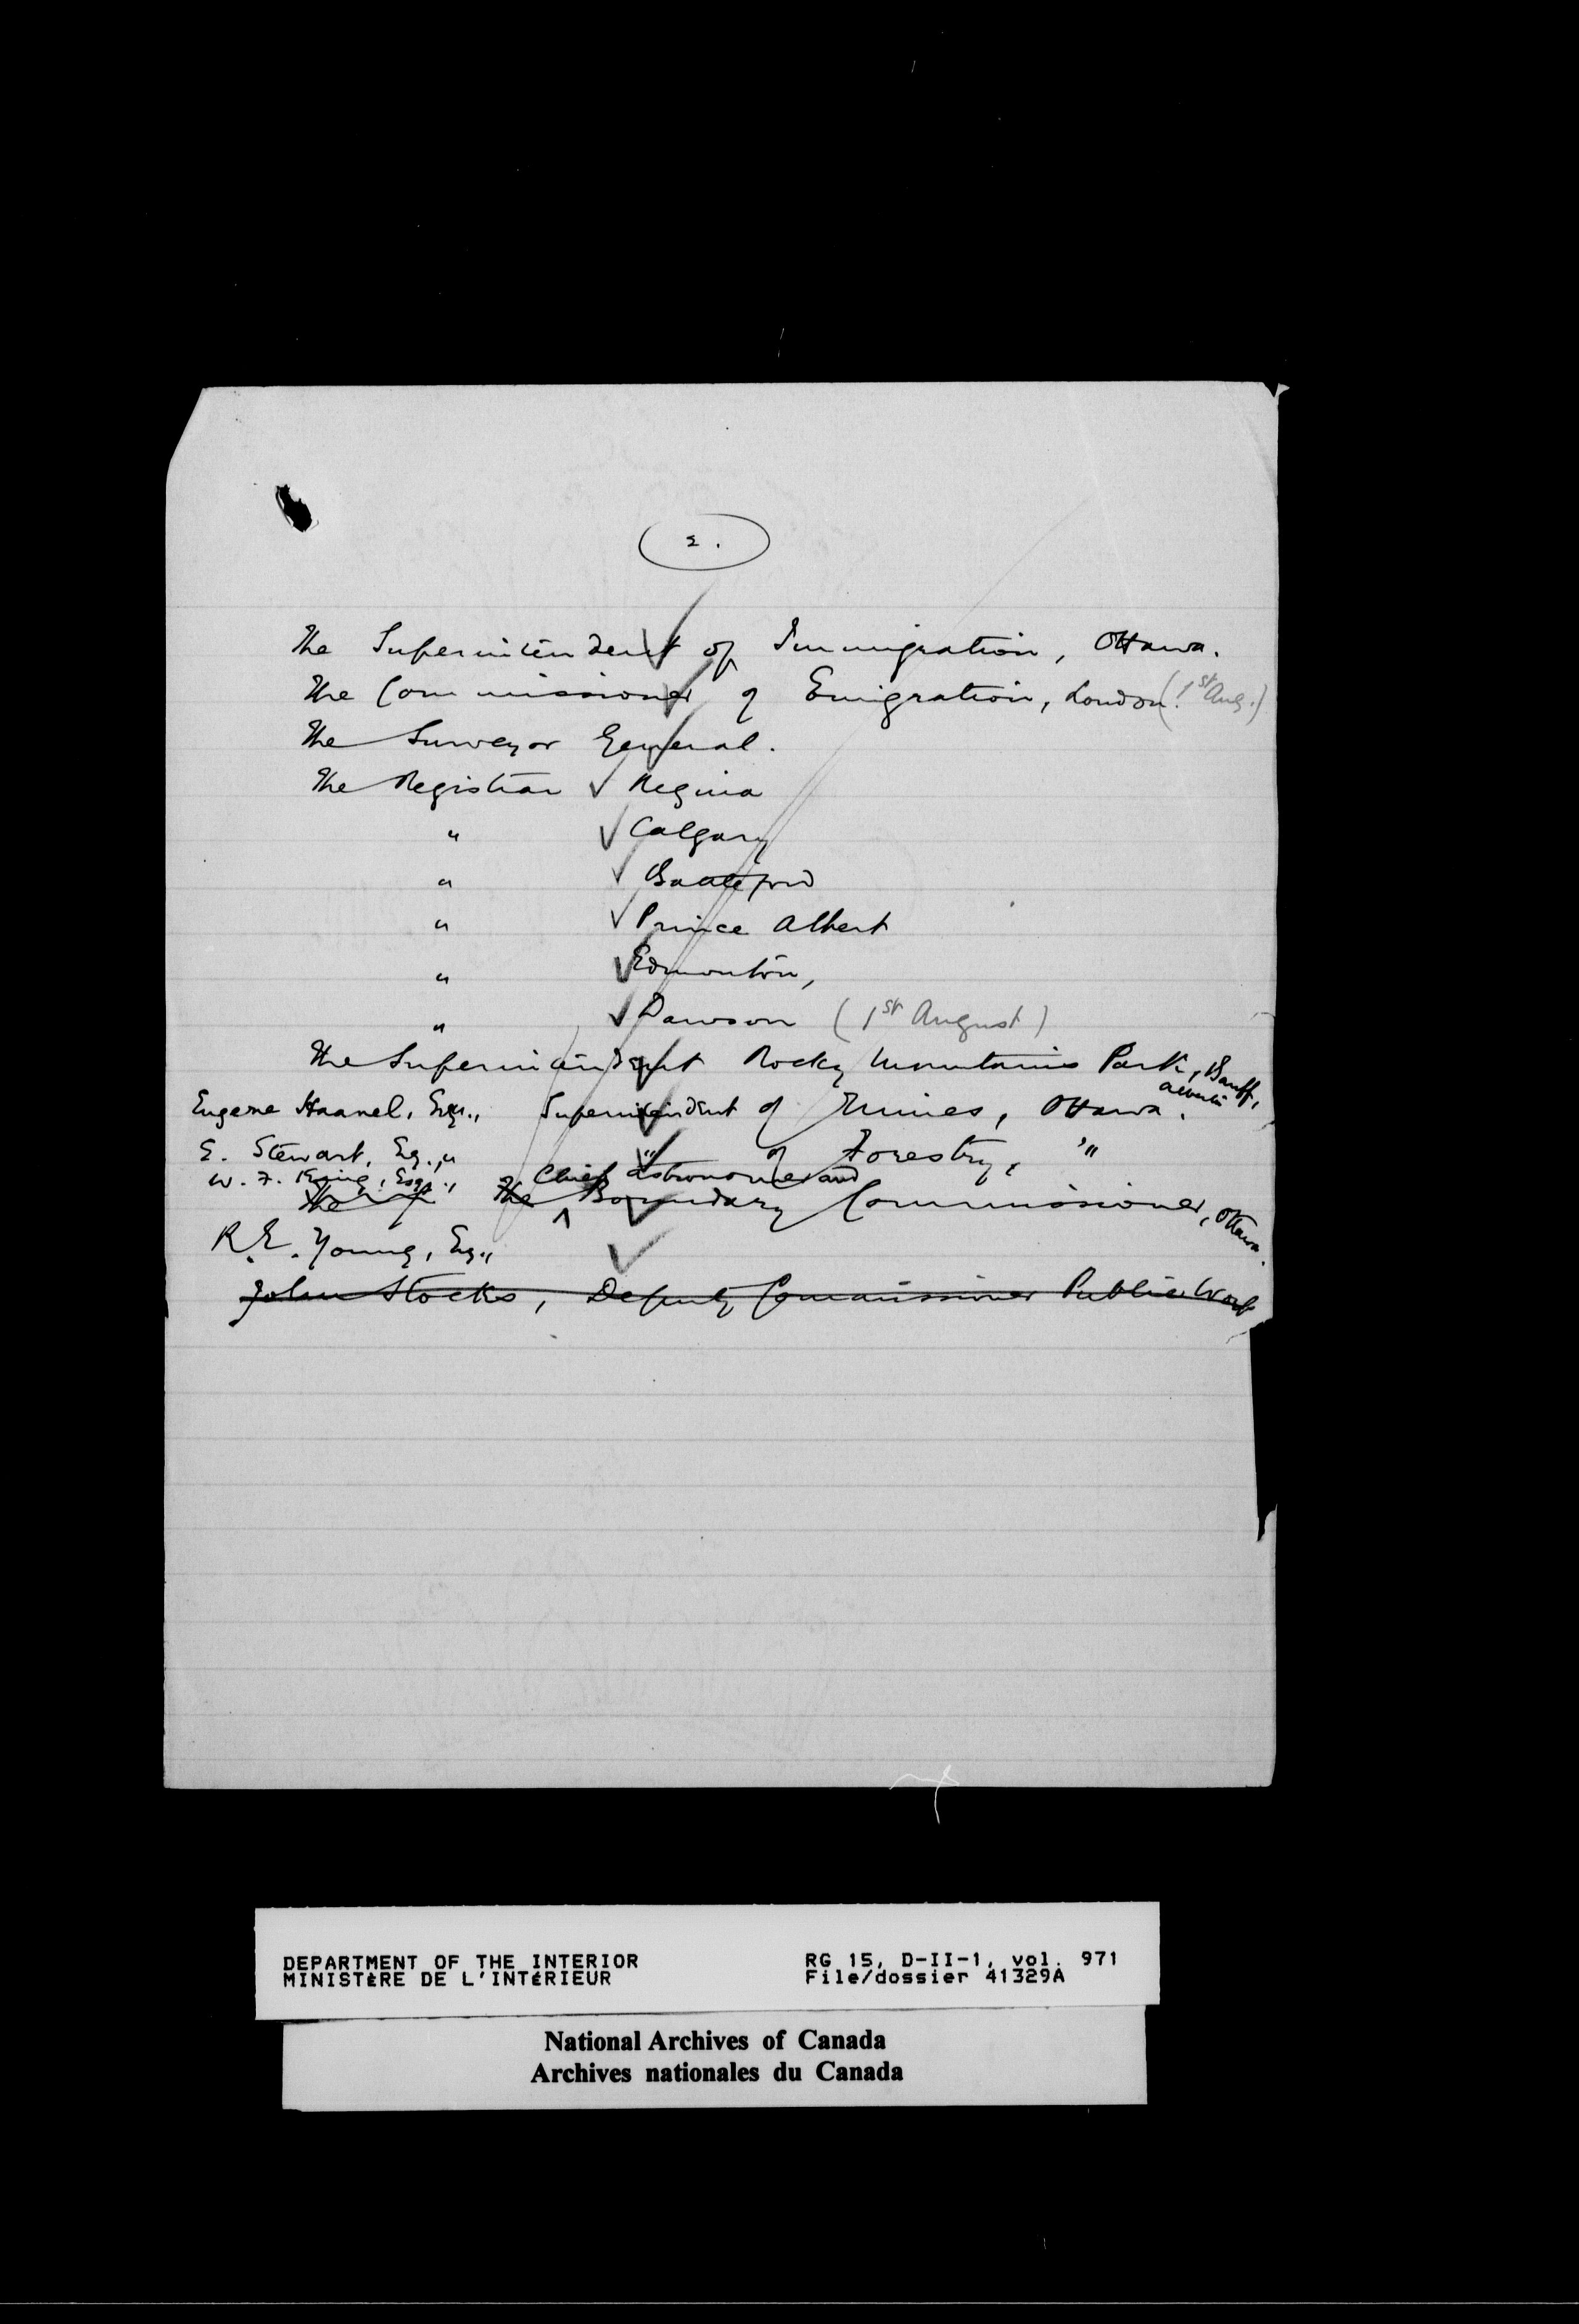 2.
The Superintendent of Immigration, Ottawa.
The Commissioner of Emigration, London. (1st Aug.)
The Surveyor General.
The Registrar Regina
" Calgary
" Battleford
" Prince Albert
" Edmonton,
" Dawson (1st August)
The Superintendent Rocky Mountains Park, Banff,
Alberta
Eugene Haanel, Esq., Superintendent of Mines, Ottawa.
E. Stewart, Esq., " of Forestry, "
W. F. King, Esq., Chief Astronomer and
The The Boundary Commissioner, Ottawa.
R. E. Young, Esq.,
John Stocks, Deputy Commissioner Public Work
DEPARTMENT OF THE INTERIOR RG 15, D-II-1, vol. 971
MINISTÈRE DE L'INTÉRIEUR File/dossier 41329A
National Archives of Canada
Archives nationales du Canada